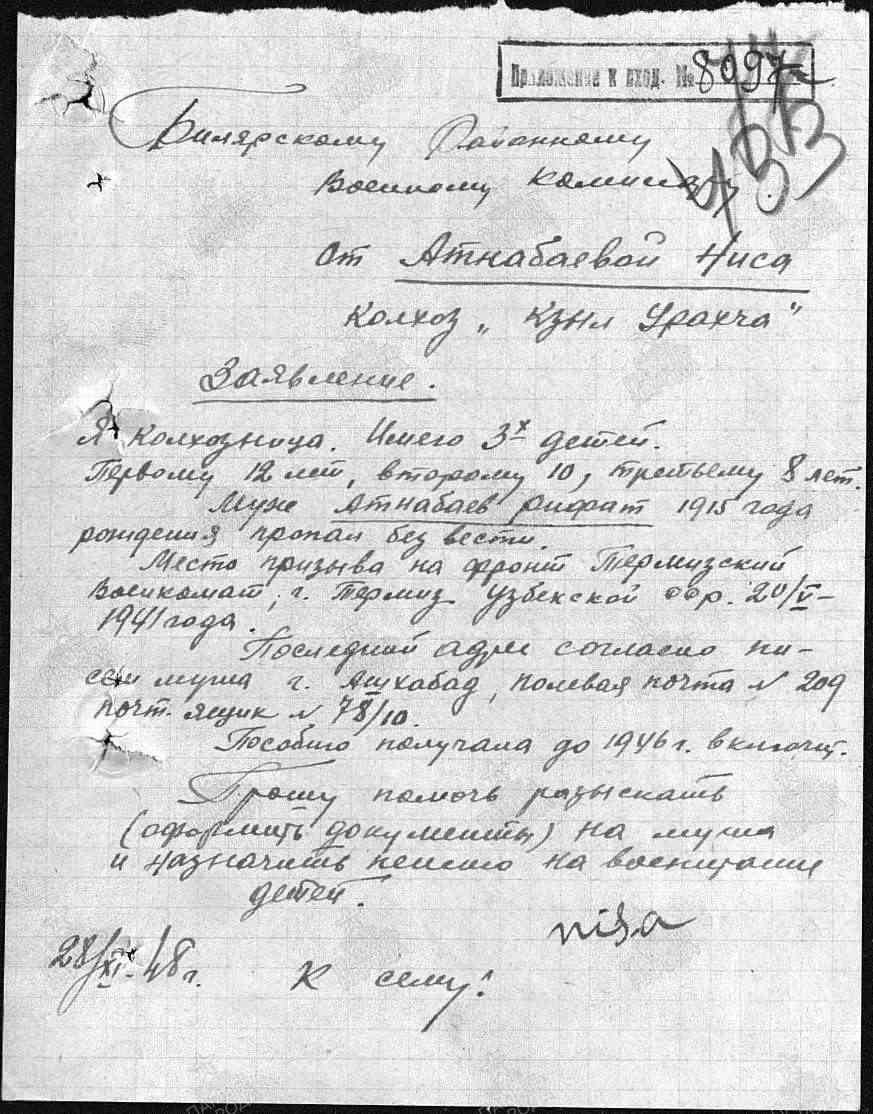 Приложение к вход. № 8097
Билярскому Районному
Военному комиссару
от Атнабаевой Ниса
колхоз „Кзыл Урахча"
Заявление.
Я колхозница. Имею 3х детей.
Первому 12 лет, второму 10, третьему 8 лет.
Муж Атнабаев Рифат 1915 года
рождения пропал без вести.
Место призыва на фронт Термизский
Военкомат, г. Термиз Узбекской ССР.
1941 года.
Последний адрес согласно пи-
сем мужа г. Ашхабад, полевая почта № 209
почт. ящик № 78/10.
Пособию получала до 1946 г. включит.
Прошу помочь разыскать
(оформить документы) на мужа
и назначить пенсию на воспитание
детей.
nisa
28/XI-48 г.
К сему: